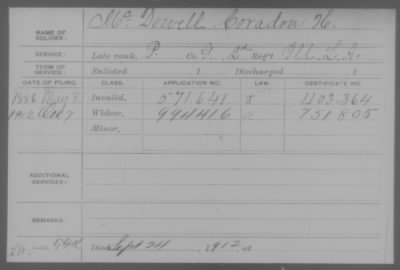 NAME OF SOLDIER: Mc Dowell, Coradon H.
SERVICE: Late rank, P. Co. G, 2d Reg't Ill. L. A.
TERM OF SERVICE: Enlisted 1 Discharged 1
DATE OF FILING. CLASS. APPLICATION NO. LAW. CERTIFICATE NO.
1886 May 8, Invalid, 571.641 403.364
1912 Oct 7 Widow, 994416 751805
Minor,
ADDITIONAL SERVICES:
REMARKS:
Died Sept 24, 1912, at